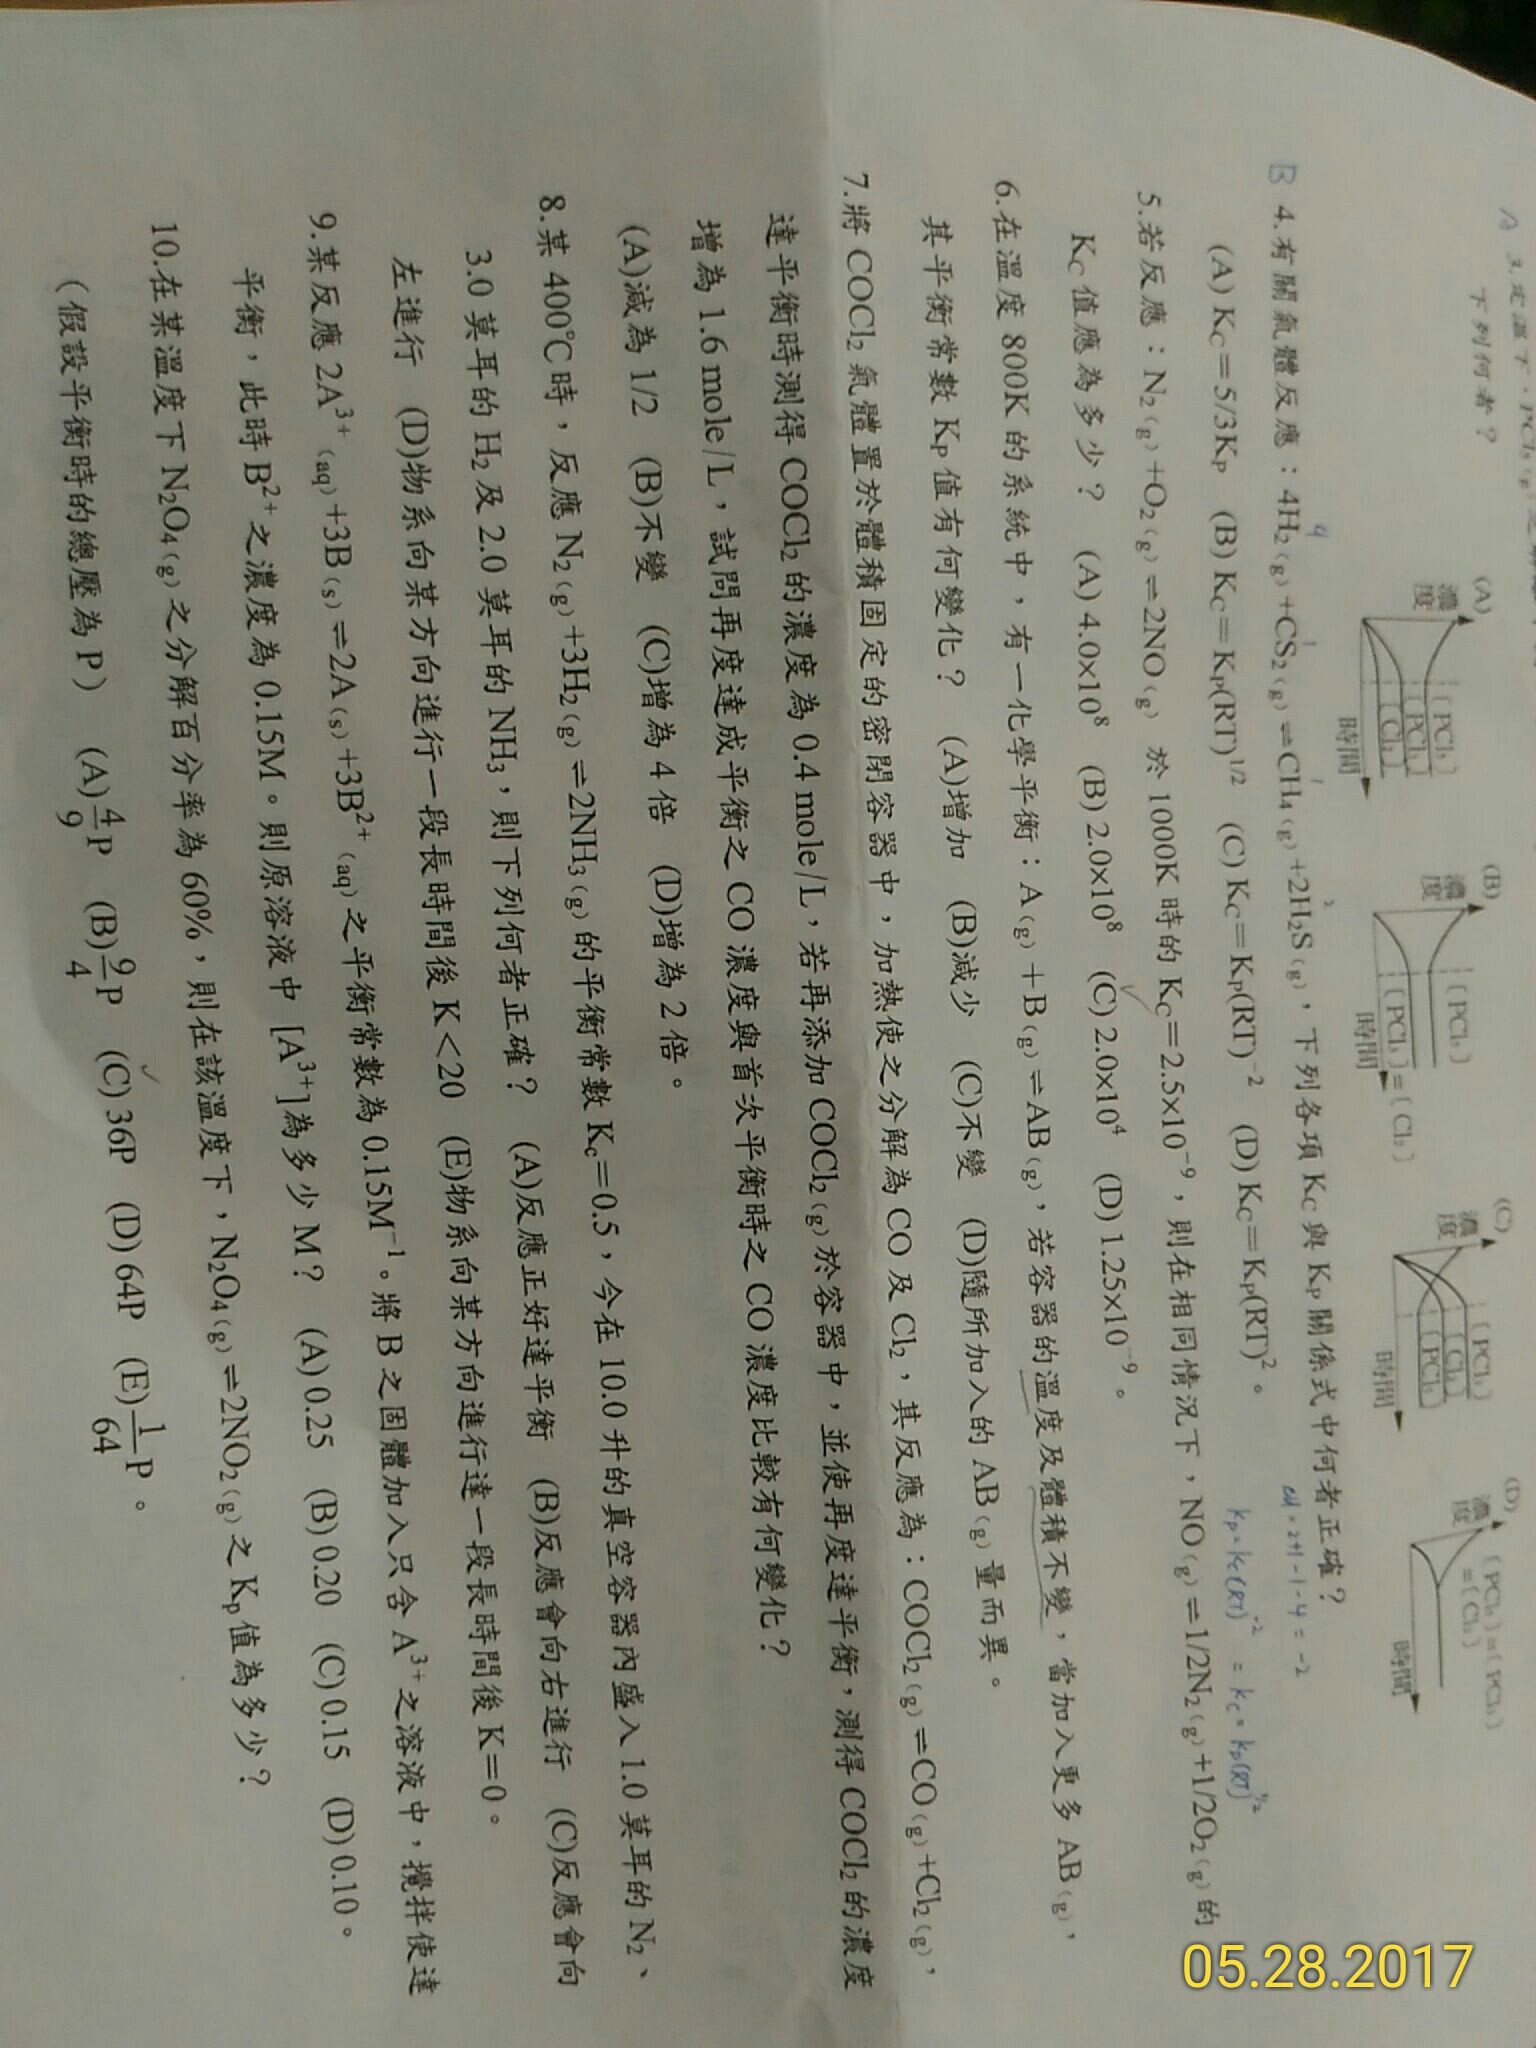 3.定溫下，PCl₅(g)
下列何者？
(A) 濃度 [PCl₅] [PCl₃] [Cl₂] 時間
(B) 濃度 [PCl₅] [PCl₃]=[Cl₂] 時間
(C) 濃度 [PCl₃] [Cl₂] [PCl₅] 時間
(D) 濃度 [PCl₅]=[PCl₃]=[Cl₂] 時間
B 4.有關氣體反應：4H₂(g)+CS₂(g)⇌CH₄(g)+2H₂S(g)，下列各項 Kc 與 Kp 關係式中何者正確？
(A) Kc=5/3Kp (B) Kc=Kp(RT)^1/2 (C) Kc=Kp(RT)⁻² (D) Kc=Kp(RT)²。
2+1-1-4=-2
Kp=Kc(RT)⁻² = Kc=Kp(RT)^1/2
5.若反應：N₂(g)+O₂(g)⇌2NO(g) 於 1000K 時的 Kc=2.5×10⁻⁹，則在相同情況下，NO(g)⇌1/2N₂(g)+1/2O₂(g)的
Kc 值應為多少？ (A) 4.0×10⁸ (B) 2.0×10⁸ (C) 2.0×10⁴ (D) 1.25×10⁻⁹。
6.在溫度 800K 的系統中，有一化學平衡：A(g)+B(g)⇌AB(g)，若容器的溫度及體積不變，當加入更多 AB(g)，
其平衡常數 Kp 值有何變化？ (A)增加 (B)減少 (C)不變 (D)隨所加入的 AB(g)量而異。
7.將 COCl₂ 氣體置於體積固定的密閉容器中，加熱使之分解為 CO 及 Cl₂，其反應為：COCl₂(g)⇌CO(g)+Cl₂(g)，
達平衡時測得 COCl₂ 的濃度為 0.4 mole/L，若再添加 COCl₂(g)於容器中，並使再度達平衡，測得 COCl₂ 的濃度
增為 1.6 mole/L，試問再度達成平衡之 CO 濃度與首次平衡時之 CO 濃度比較有何變化？
(A)減為 1/2 (B)不變 (C)增為 4 倍 (D)增為 2 倍。
8.某 400℃時，反應 N₂(g)+3H₂(g)⇌2NH₃(g)的平衡常數 Kc=0.5，今在 10.0 升的真空容器內盛入 1.0 莫耳的 N₂、
3.0 莫耳的 H₂ 及 2.0 莫耳的 NH₃，則下列何者正確？ (A)反應正好達平衡 (B)反應會向右進行 (C)反應會向
左進行 (D)物系向某方向進行一段長時間後 K<20 (E)物系向某方向進行達一段長時間後 K=0。
9.某反應 2A³⁺(aq)+3B(s)⇌2A(s)+3B²⁺(aq)之平衡常數為 0.15M⁻¹。將 B 之固體加入只含 A³⁺之溶液中，攪拌使達
平衡，此時 B²⁺之濃度為 0.15M。則原溶液中 [A³⁺]為多少 M？ (A) 0.25 (B) 0.20 (C) 0.15 (D) 0.10。
10.在某溫度下 N₂O₄(g)之分解百分率為 60%，則在該溫度下，N₂O₄(g)⇌2NO₂(g)之 Kp 值為多少？
（假設平衡時的總壓為 P） (A) 4/9 P (B) 9/4 P (C) 36P (D) 64P (E) 1/64 P。
05.28.2017